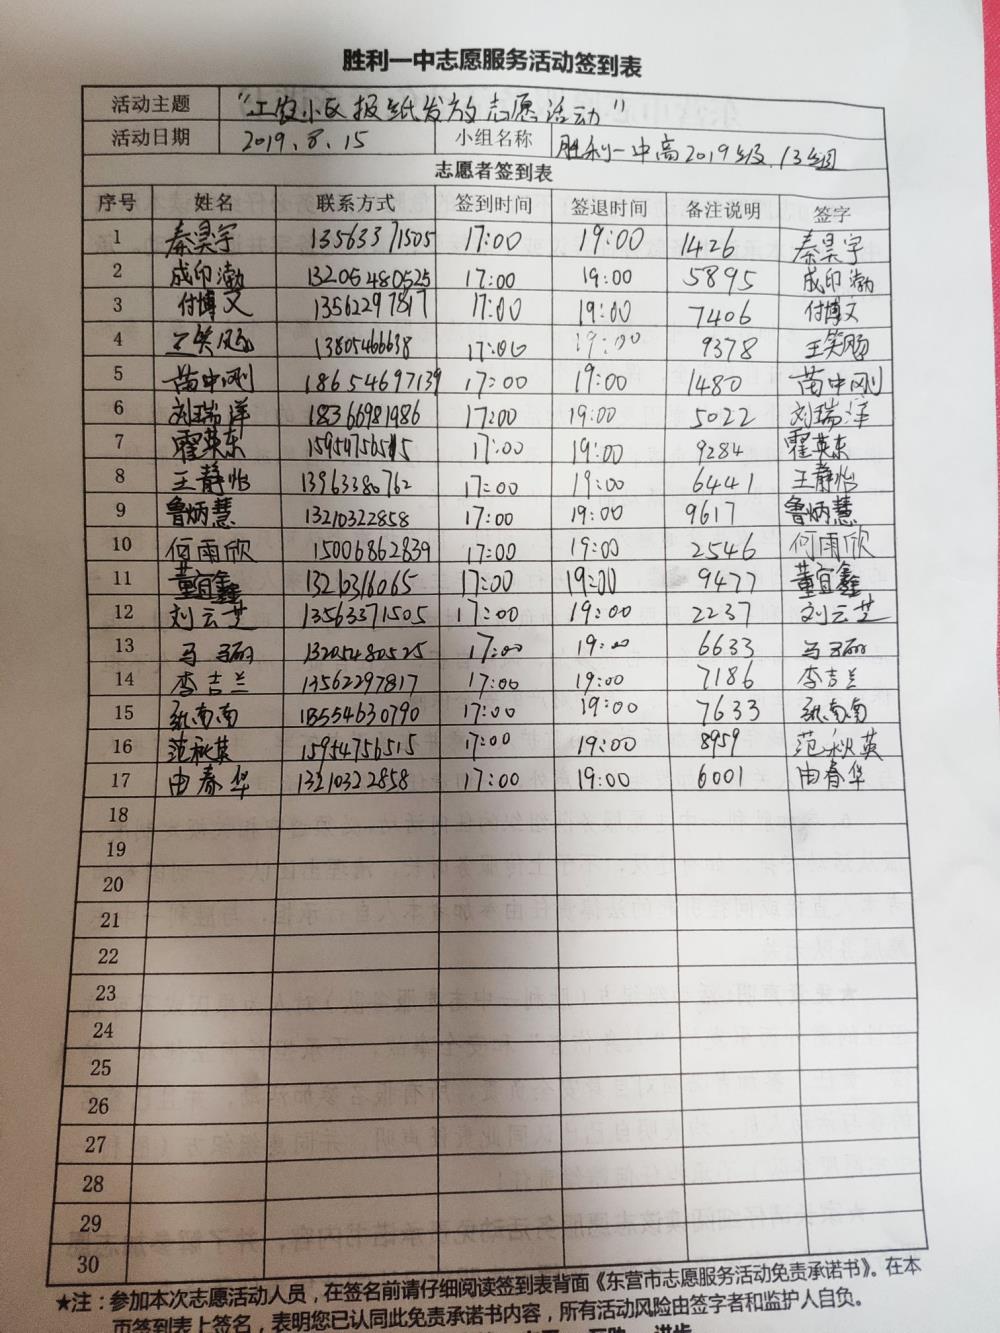 胜利一中志愿服务活动签到表
活动主题 "工农小区报纸发放志愿活动"
活动日期 2019.8.15 小组名称 胜利一中高2019级.13组
志愿者签到表
序号 姓名 联系方式 签到时间 签退时间 备注说明 签字
1 秦昊宇 13563371505 17:00 19:00 1426 秦昊宇
2 成印瀚 13205480525 17:00 19:00 5895 成印瀚
3 付博文 13562297817 17:00 19:00 7406 付博文
4 王笑旸 13805466638 17:00 19:00 9378 王笑旸
5 苗中刚 18654697139 17:00 19:00 1480 苗中刚
6 刘瑞洋 18366981986 17:00 19:00 5022 刘瑞洋
7 霍英东 17:00 19:00 9284 霍英东
8 王静怡 13963380762 17:00 19:00 6441 王静怡
9 鲁炳慧 13210322858 17:00 19:00 9617 鲁炳慧
10 何雨欣 15006862839 17:00 19:00 2546 何雨欣
11 董宜鑫 17:00 19:00 9477 董宜鑫
12 刘云芝 13563371505 17:00 19:00 2237 刘云芝
13 马丽 13205480525 17:00 19:00 6633 马丽
14 李吉兰 13562297817 17:00 19:00 7186 李吉兰
15 南南 17:00 19:00 7633 南南
16 范秋英 15954756515 17:00 19:00 8959 范秋英
17 由春华 13210322858 17:00 19:00 6001 由春华
18
19
20
21
22
23
24
25
26
27
28
29
30
★注：参加本次志愿活动人员，在签名前请仔细阅读签到表背面《东营市志愿服务活动免责承诺书》。在本
页签到表上签名，表明您已认同此免责承诺书内容，所有活动风险由签字者和监护人自负。